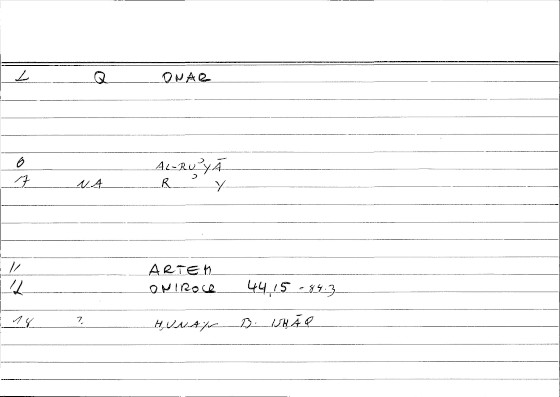 1 Q ONAR
6 AL-RUʾYĀ
17 NA R ʾ Y
11 ARTEM
12 ONIROCR 44,15 - 44.3
14 ? ḤUNAYN B. ISḤĀQ